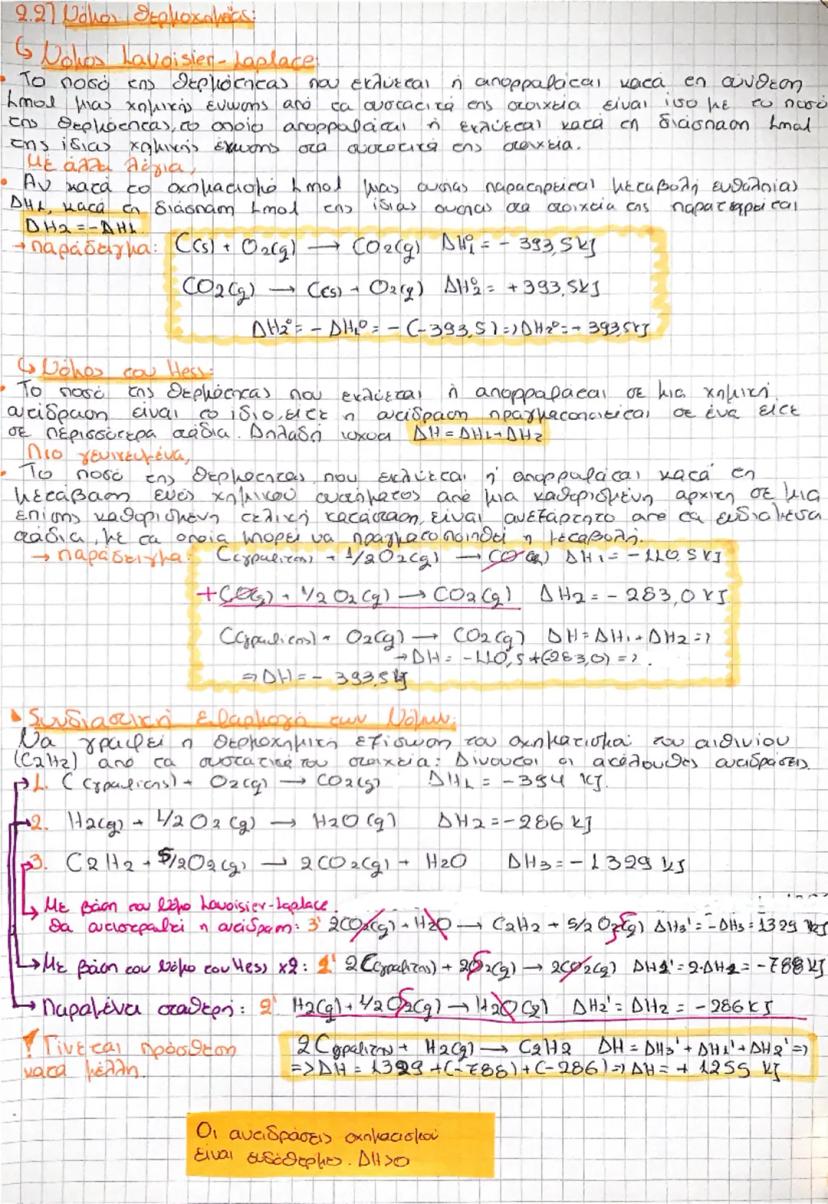 2.2) Νόμοι Θερμοχημείας:
↳ Νόμος Lavoisier-Laplace:
• Το ποσό της θερμότητας που εκλύεται ή απορροφάται κατά τη σύνθεση
1mol μιας χημικής ένωσης από τα συστατικά της στοιχεία είναι ίσο με το ποσό
της θερμότητας, το οποίο απορροφάται ή εκλύεται κατά τη διάσπαση 1mol
της ίδιας χημικής ένωσης στα συστατικά της στοιχεία.
Με άλλα λόγια,
• Αν κατά το σχηματισμό 1mol μιας ουσίας παρατηρείται μεταβολή ενθαλπίας
ΔΗ1, κατά τη διάσπαση 1mol της ίδιας ουσίας στα στοιχεία της παρατηρείται
ΔΗ2=-ΔΗ1
→ παράδειγμα: C(s) + O2(g) → CO2(g) ΔΗ1° = - 393,5kJ
CO2(g) → C(s) + O2(g) ΔΗ2° = + 393,5kJ
ΔΗ2° = - ΔΗ1° = - (-393,5) => ΔΗ2° = + 393,5kJ
↳ Νόμος του Hess:
• Το ποσό της θερμότητας που εκλύεται ή απορροφάται σε μια χημική
αντίδραση είναι το ίδιο, είτε η αντίδραση πραγματοποιείται σε ένα είτε
σε περισσότερα στάδια. Δηλαδή ισχύει ΔΗ=ΔΗ1+ΔΗ2
Πιο γενικευμένα,
• Το ποσό της θερμότητας που εκλύεται ή απορροφάται κατά τη
μετάβαση ενός χημικού συστήματος από μια καθορισμένη αρχική σε μια
επίσης καθορισμένη τελική κατάσταση, είναι ανεξάρτητο από τα ενδιάμεσα
στάδια, με τα οποία μπορεί να πραγματοποιηθεί η μεταβολή.
→ παράδειγμα: C(γραφίτης) + 1/2O2(g) → CO(g) ΔΗ1 = -110,5 kJ
+CO(g) + 1/2 O2(g) → CO2(g) ΔΗ2 = - 283,0 kJ
C(γραφίτης) + O2(g) → CO2(g) ΔΗ = ΔΗ1 + ΔΗ2 =>
→ΔΗ = -110,5+(-283,0) =>
=> ΔΗ = - 393,5kJ
Συνδιαστική Εφαρμογή των Νόμων:
Να γραφεί η θερμοχημική εξίσωση του σχηματισμού του αιθινίου
(C2H2) από τα συστατικά του στοιχεία: Δίνονται οι ακόλουθες αντιδράσεις
1. C(γραφίτης) + O2(g) → CO2(g) ΔΗ1 = -394 kJ.
2. H2(g) + 1/2 O2(g) → H2O(g) ΔΗ2=-286 kJ
3. C2H2 + 5/2O2(g) → 2CO2(g) + H2O ΔΗ3=-1329 kJ
Με βάση του Νόμο Lavoisier-Laplace
θα αντιστραφεί η αντίδραση: 3' 2CO2(g) + H2O → C2H2 + 5/2 O2(g) ΔΗ3' = -ΔΗ3 = 1329 kJ
Με βάση του Νόμο του Hess x2: 1' 2C(γραφίτης) + 2O2(g) → 2CO2(g) ΔΗ1'=2·ΔΗ1=-788kJ
Παραμένει σταθερή: 2' H2(g)+1/2O2(g) → H2O(g) ΔΗ2' = ΔΗ2 = -286kJ
! Γίνεται πρόσθεση
κατά μέλη.
2Cγραφίτης + H2(g) → C2H2 ΔΗ = ΔΗ3' + ΔΗ1' + ΔΗ2' =>
=> ΔΗ = 1329 +(-788)+(-286)=> ΔΗ= + 1255 kJ
Οι αντιδράσεις σχηματισμού
είναι ενδόθερμες. ΔΗ>0